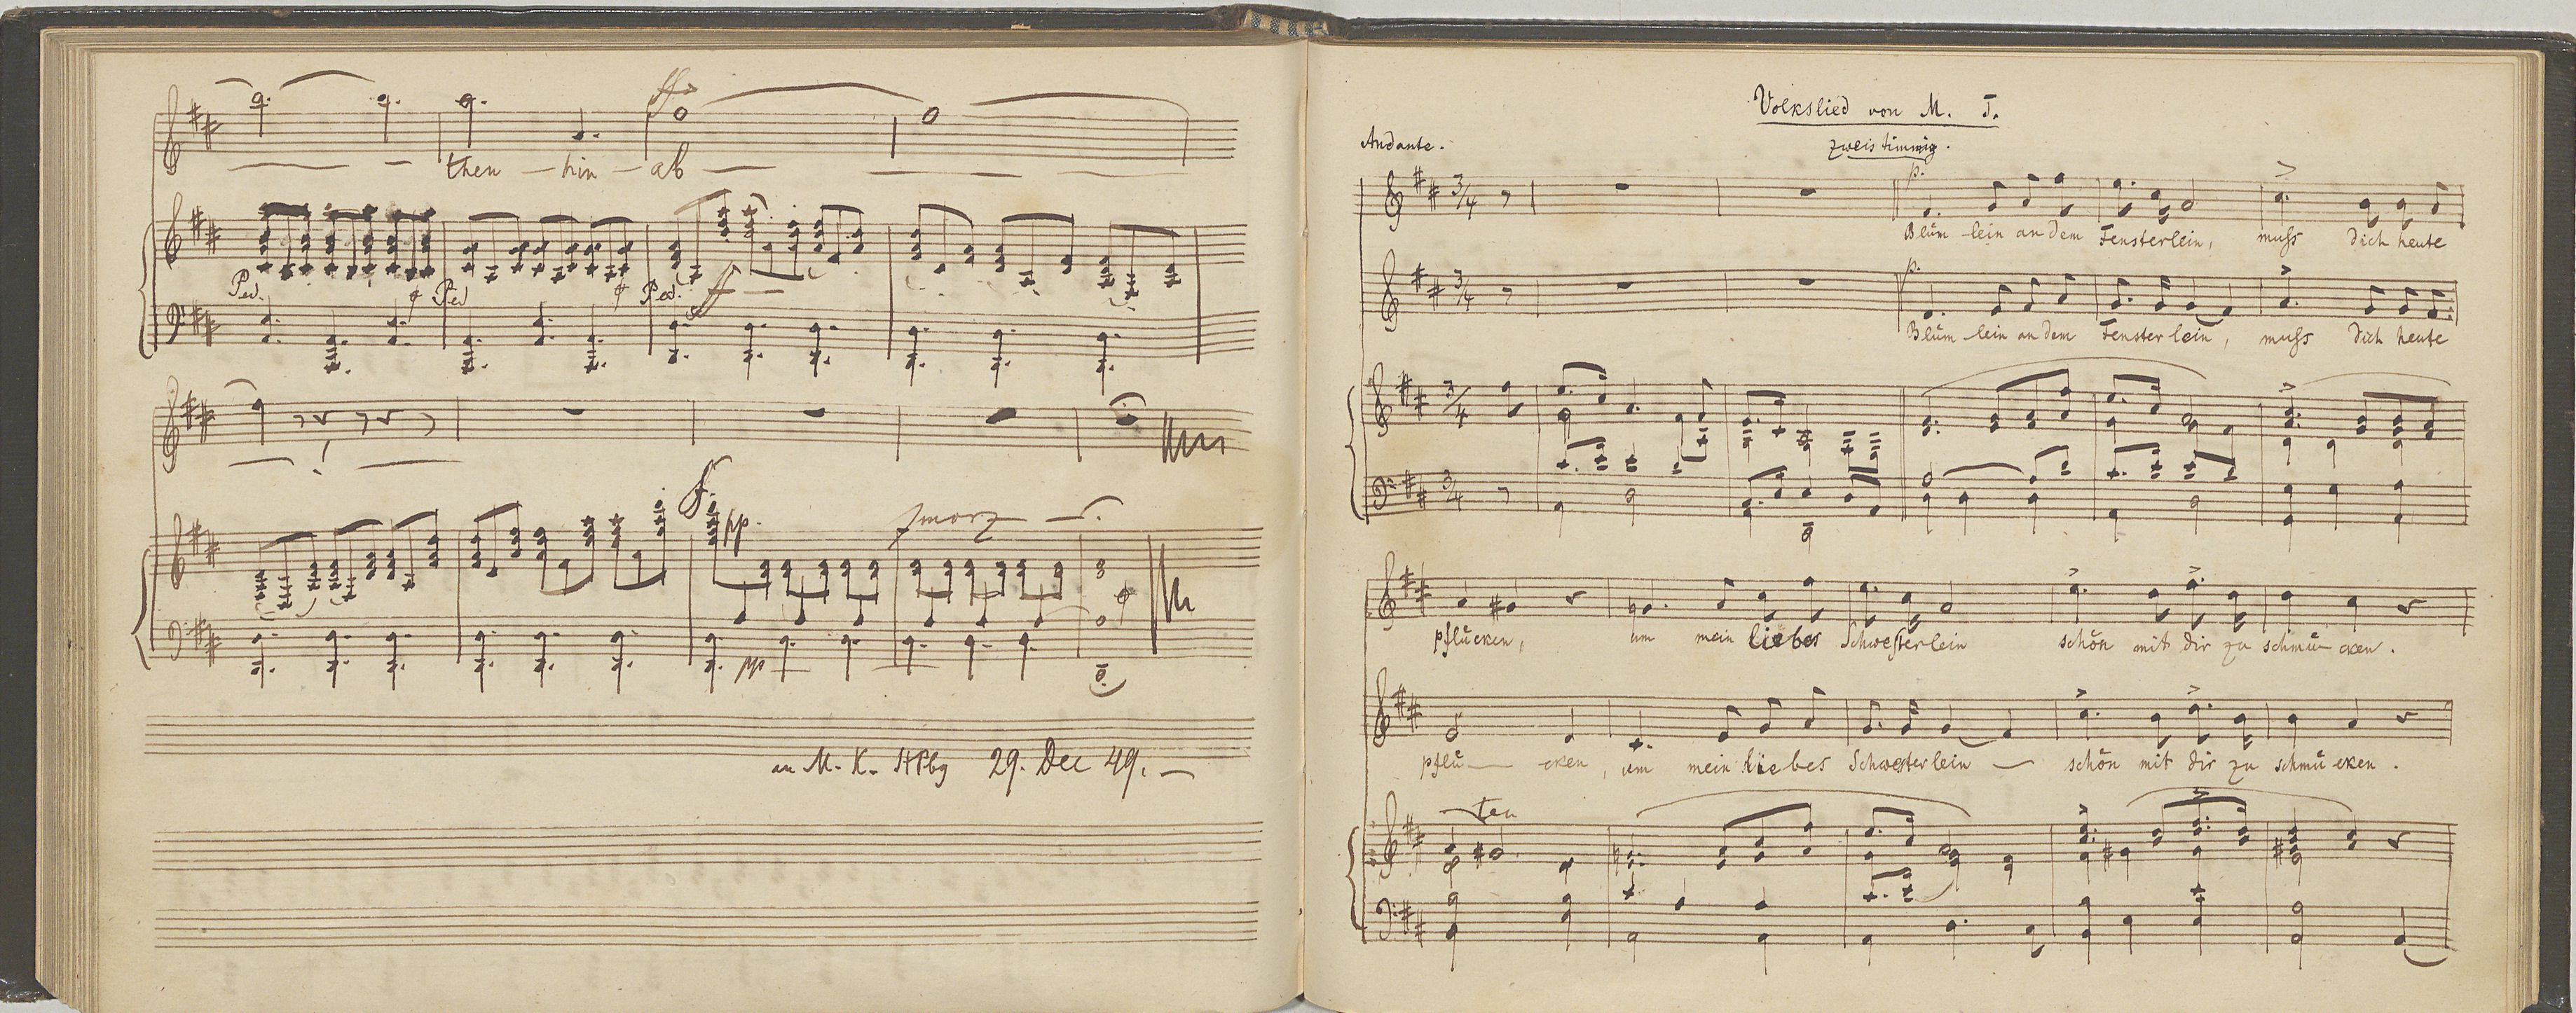 ff
then - hin - ab
Ped. Ped Ped. f
f.
pp. smorz
pp
an M. K. StPbg 29. Dec 49.
Volkslied von M. T.
zweistimmig.
Andante.
3/4 p.
Blüm - lein an dem Fensterlein, muſs dich heute
3/4 p.
Blüm - lein an dem Fensterlein, muſs dich heute
3/4
3/4
pflücken, um mein liebes Schwesterlein schön mit dir zu schmü - cken.
pflü - cken, um mein liebes Schwesterlein schön mit dir zu schmücken.
ten